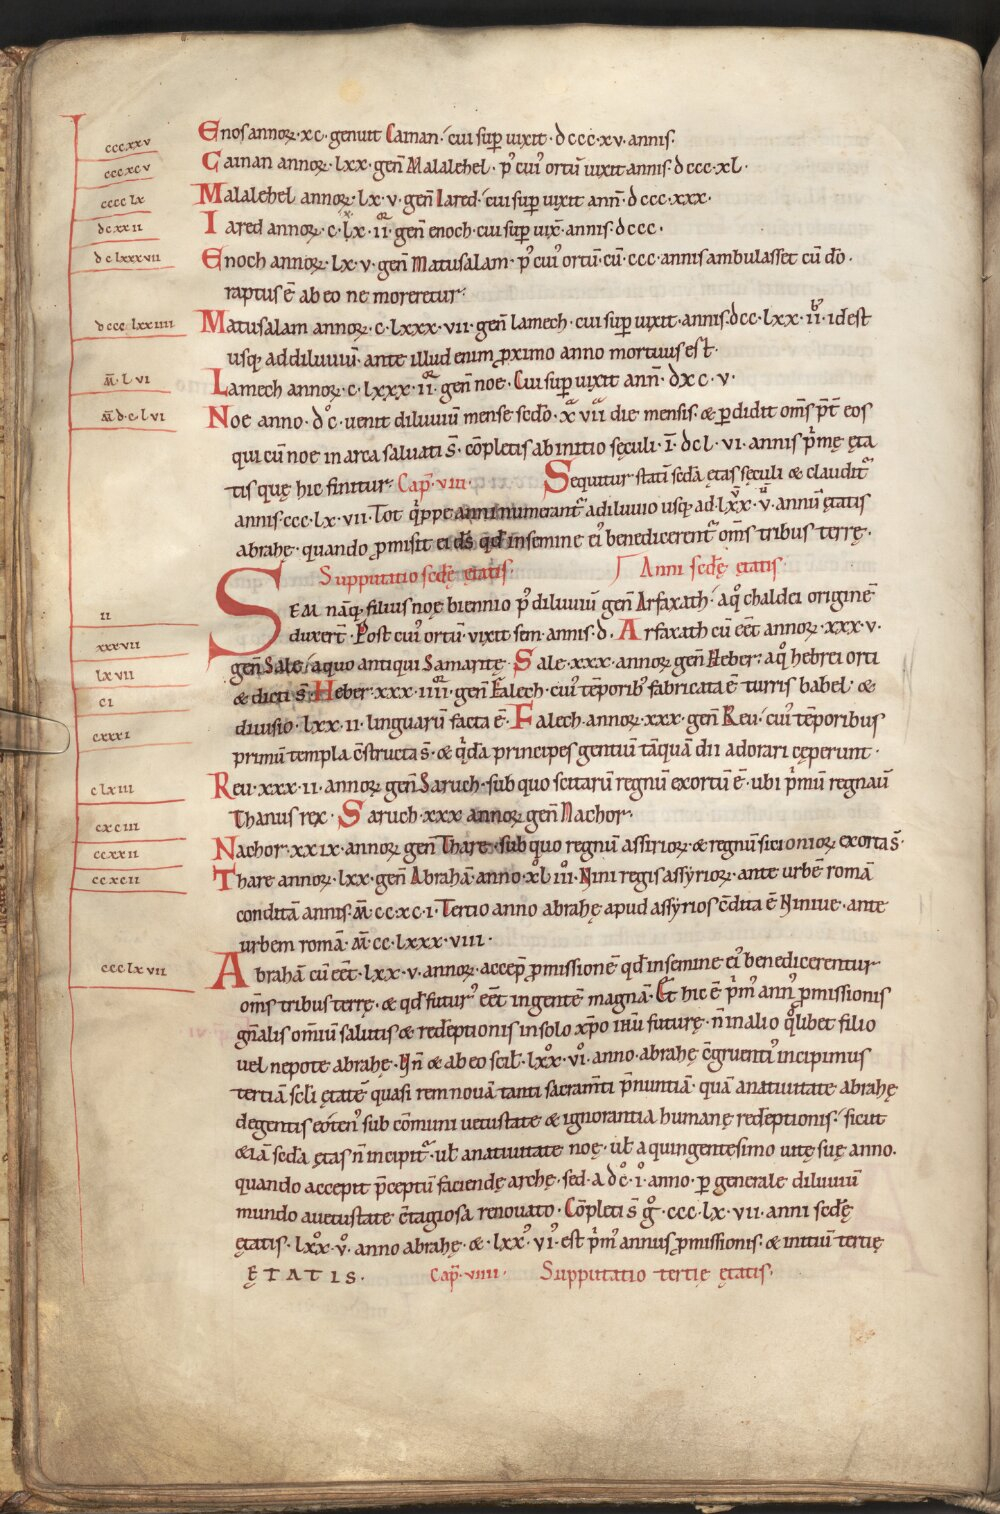 cccxxv
Enos annoꝝ·xc·genuit Cainan·cui suꝑ uixit·dccc·xv·annis.
cccxcv
Cainan annoꝝ·lxx·geñ Malalehel·p᷒ cui᷒ ortū uixit annis·dccc·xl·
cccc lx
Malalehel annoꝝ·lx·v·geñ Iared·cui suꝑ uixit anñ·dccc·xxx·
dcxxii
Iared annoꝝ·c·lx·ii·geñ enoch·cui suꝑ uix̄·annis·dccc·
dclxxxvii
Enoch annoꝝ·lx·v·geñ Matusalam·p᷒ cui᷒ ortū·cū·ccc·annis ambulasset cū dō·
raptus ē ab eo ne moreretur·
dccc lxxiiii
Matusalam annoꝝ·c·lxxx·vii·geñ lamech·cui suꝑ uixit·annis·dcc·lxx·ii·id est
usq; ad diluuiū·ante illud enim ꝓximo anno mortuus est·
m̄·l·vi
Lamech annoꝝ·c·lxxx·ii·geñ noe·Cui suꝑ uixit anñ·dxc·v·
m̄ d·c·lvi
Noe anno·dc·uenit diluuiū mense secdo·x vii die mensis·& ꝑdidit om̄s p̄t eos
qui cū noe in arca saluati s̄·cōpletis ab initio sęculi·ī·dcl·vi·annis pͥmę ęta
tis quę hic finitur·Cap̄·viii· Sequitur statī secd̄a ętas sęculi & claudit᷑
annis·ccc·lx·vii·Tot qͥppe anni numerant᷑ a diluuio usq; ad·lxx·v·annū ętatis
abrahę·quando ꝓmisit ei d̄s qd̄ in semine ei᷒ benedicerent᷑ om̄s tribus terrę·
Supputatio secd̄ę ętatis· Anni secd̄ę ętatis·
ii
SEM nāq; filius noę biennio p᷒ diluuiū geñ Arfaxath·a qͦ chaldei originē
duxert̄·Post cui᷒ ortū·vixit sem·annis·d·Arfaxath cū eēt annoꝝ·xxx·v·
xxxvii
geñ Sale·a quo antiqui Samaritę·Sale·xxx·annoꝝ geñ Heber·a qͦ hebrei orti
lxvii
& dicti s̄·Heber·xxx·iiii·geñ Falech·cui᷒ tēporib᷒ fabricata ē turris babel·&
ci
diuisio·lxx·ii·linguarū facta ē·Falech·annoꝝ·xxx·geñ Reu·cui᷒ tēporibus
cxxxi
primū templa c̄structa s̄·& qͥdā principes gentiū tāquā dii adorari cęperunt·
clxiii
Reu·xxx·ii·annoꝝ geñ Saruch·sub quo scitarū regnū exortū ē·ubi pͥmū regnauit
Thanus rex·Saruch·xxx annoꝝ geñ Nachor·
cxciii
ccxxii
Nachor·xxix·annoꝝ geñ Thare·sub quo regnū assirioꝝ·& regnū sicionioꝝ exorta s̄·
ccxcii
Thare annoꝝ·lxx·geñ Abrahā·anno·xl iii·Nini regis assyrioꝝ·ante urbē romā
conditā annis·m̄·cc·xc·i·Tertio anno abrahę apud assyrios c̄dita ē Niniue·ante
urbem romā·m̄·cc·lxxx·viii·
ccc·lxvii
Abrahā cū eēt·lxx·v·annoꝝ·accep̄ ꝓmissionē qd̄ in semine ei᷒ benedicerentur
om̄s tribus terrę·& qd̄ futur᷒ eēt in gentē magnā·Et hic ē pͥm᷒ ann᷒ ꝓmissionis
gñalis om̄iū salutis & redēptionis in solo xp̄o ih̄u futurę·ñ in alio qͦlibet filio
uel nepote abrahę·Nñ & ab eo scil·lxx·vi·anno·abrahę c̄gruenti᷒ incipimus
tertiā sc̄li ętatē quasi rem nouā tanti sacram̄ti p̄nuntiā·quā a natiuitate abrahę
degentis eotenꝰ sub cōmuni uetustate & ignorantia humanę redēptionis·sicut
& iā secd̄a ętas ñ incipit᷑·ul̄ a natiuitate noę·ul̄ a quingentesimo uitę suę anno·
quando accepit p̄ceptū faciendę archę·sed·a dc·i·anno·ꝑ generale diluuiū
mundo a uetustate c̄tagiosa renouato·Cōpleti s̄ gͦ·ccc·lx·vii·anni secd̄ę
ętatis·lxx·v·anno abrahę·&·lxx·vi·est pͥm᷒ annus ꝓmissionis·& initiū tertię
ĘTATIS· Cap̄·viiii· Supputatio tertię ętatis·